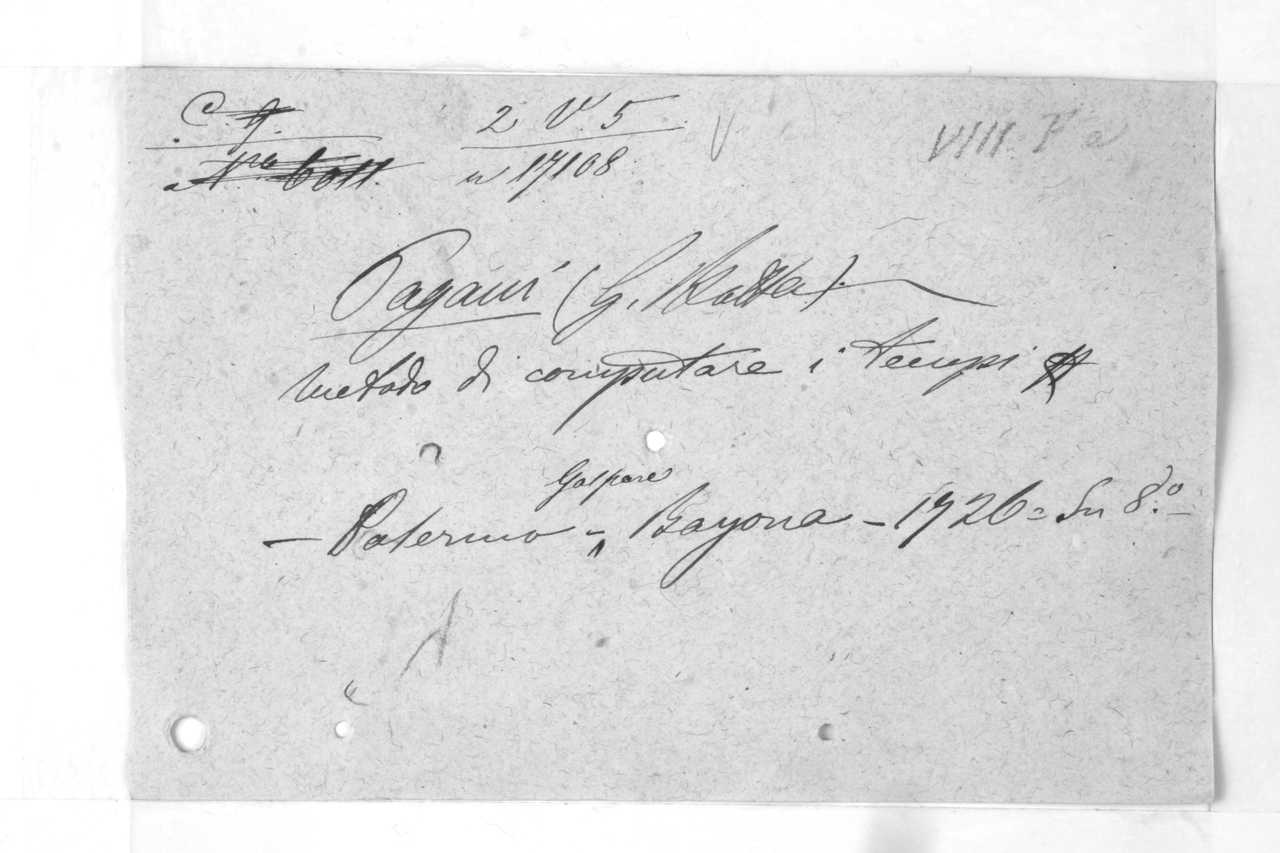 C. g.
2 V. 5
VIII. F a
n 17108
Pagani (G. Batta)
Metodo di computare i tempi
Gaspare
— Palermo - Bayona - 1726 = In 8.°